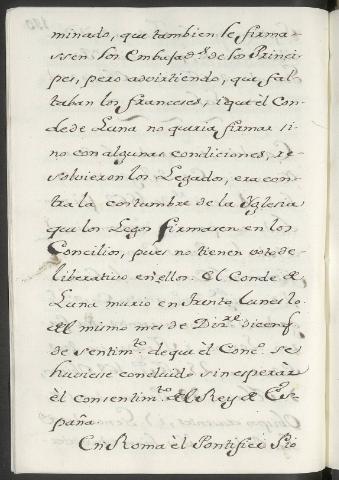 minado, que tambien le firma
ssen los Embajad.s de los Princi
pes, pero advirtiendo, que fal
taban los franceses, i que èl Con
de de Luna no queria firmar si
no con algunas condiciones, re
solvieron los Legados, era con
tra la costumbre de la Yglesia
que los Legos firmasen en los
Concilios, pues no tienen voto de
liberativo en ellos. El Conde de
Luna murio en Trento Lunes lo
del mismo mes de Diz.re dicen q
de sentim.to de que èl Conc.o se
huviese concluido sin esperàr
èl consentim.to del Rey de Es
paña.
En Roma èl Pontifice Pio